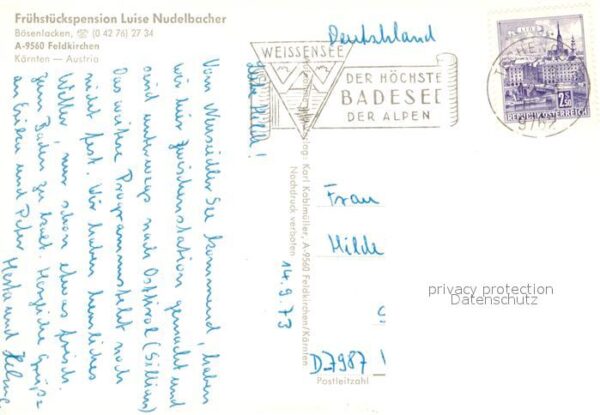 Frühstückspension Luise Nudelbacher
Bösenlacken, ☏ (0 42 76) 27 34
A-9560 Feldkirchen
Kärnten — Austria
14.9.73
Liebe Hilde!
Vom Neusiedler See kommend, haben
wir hier Zwischenstation gemacht und
sind unterwegs nach Osttirol (Sillian)
Das weitere Programm steht noch
nicht fest. Wir haben herrliches
Wetter, nur schon etwas frisch
zum Baden zu kalt. Herzliche Grüße
an und Peter Herta und
Verlag: Karl Kablmüller, A-9560 Feldkirchen/Kärnten
Nachdruck verboten
WEISSENSEE
DER HÖCHSTE
BADESEE
DER ALPEN
9762
2.50
REPUBLIK ÖSTERREICH
Deutschland
Frau
Hilde
D-7987
Postleitzahl
privacy protection
Datenschutz